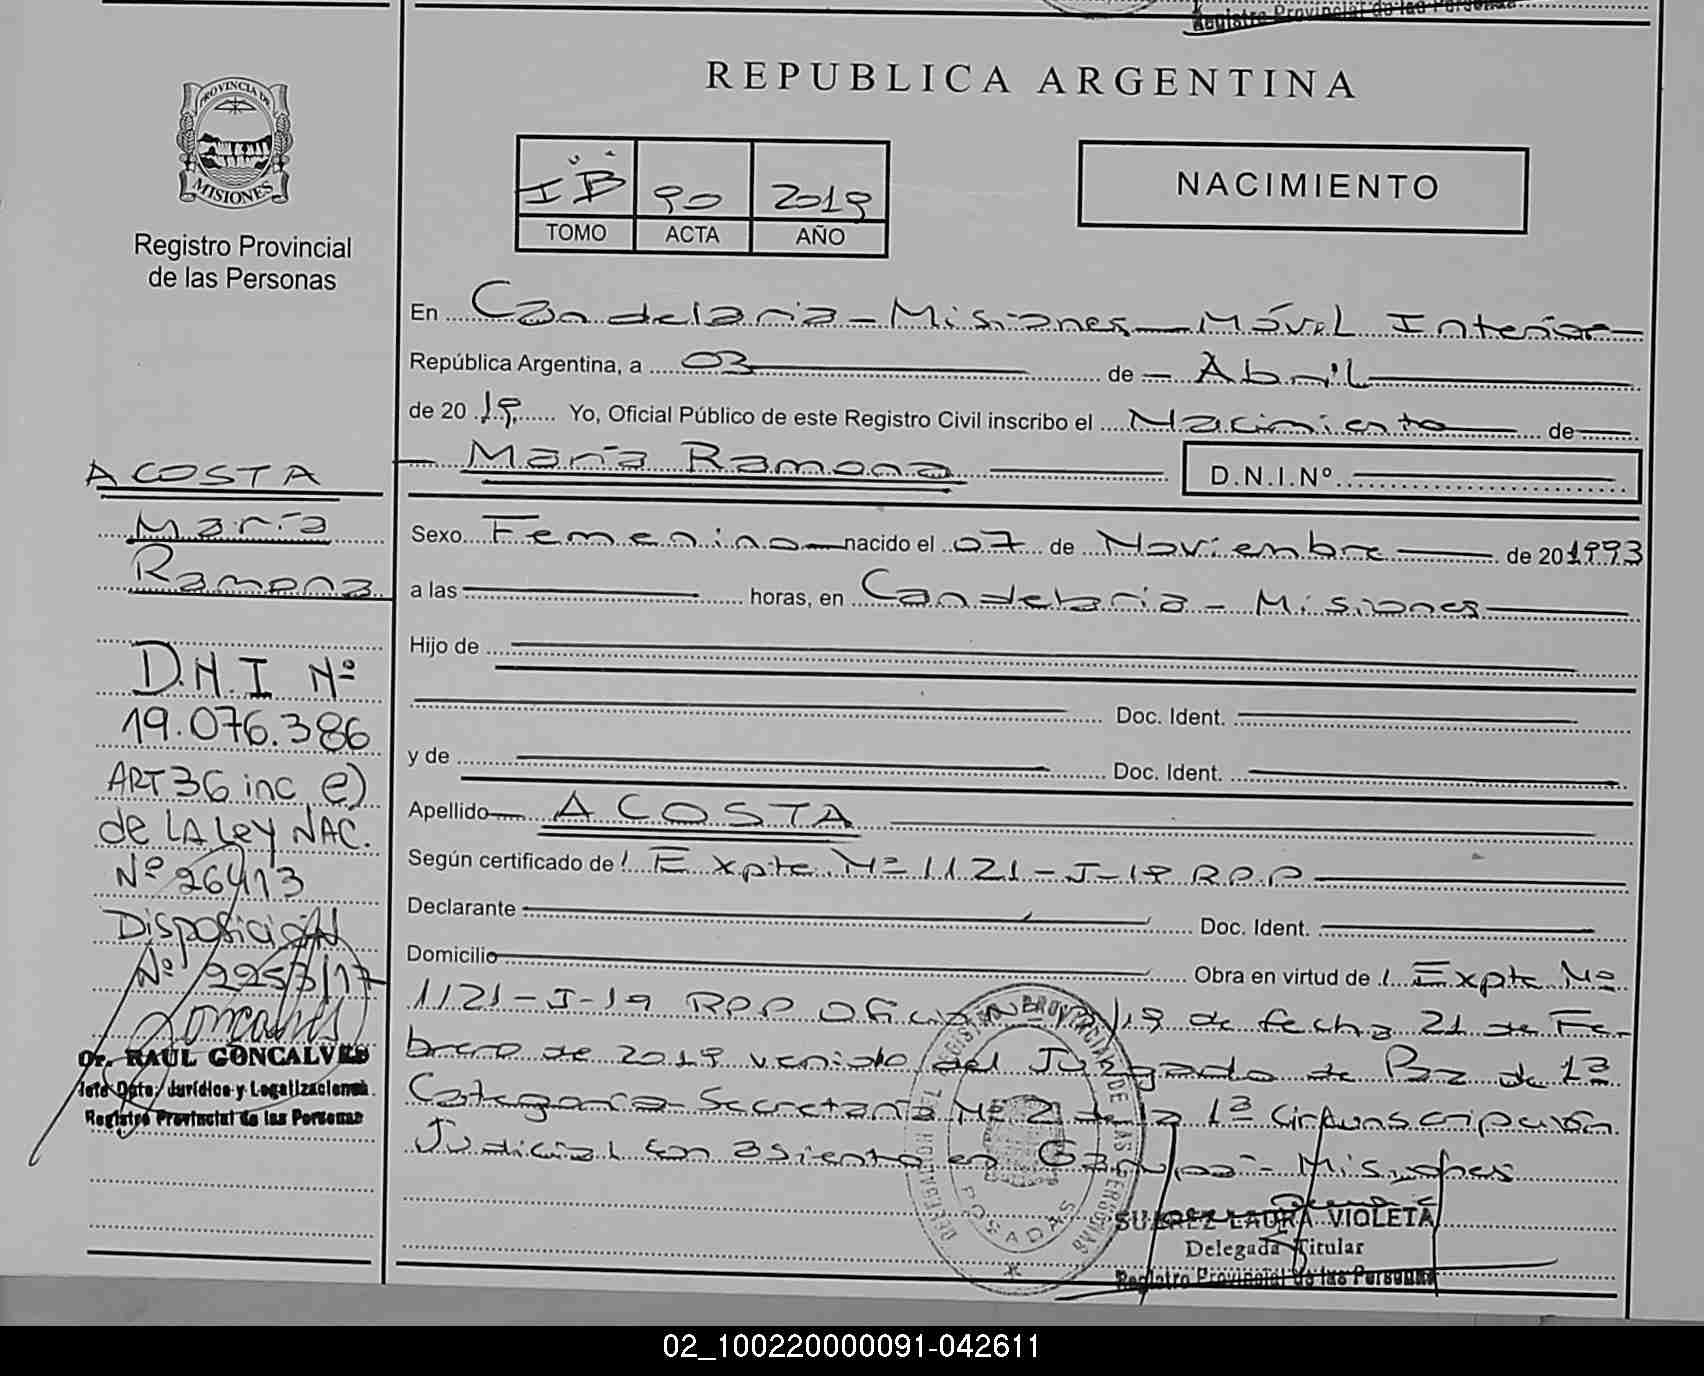 Registro Provincial de las Personas
REPUBLICA ARGENTINA
PROVINCIA DE
MISIONES
Registro Provincial
de las Personas
I B 90 2019
TOMO ACTA AÑO
NACIMIENTO
En Candelaria - Misiones - Móvil Interior
República Argentina, a 03 de Abril
de 2019 Yo, Oficial Público de este Registro Civil inscribo el Nacimiento de
María Ramona D.N.I.Nº
Sexo Femenino nacido el 07 de Noviembre de 20 1993
a las horas, en Candelaria - Misiones
Hijo de
Doc. Ident.
y de Doc. Ident.
Apellido ACOSTA
Según certificado de Expte. Nº 1121-J-19 RPP
Declarante Doc. Ident.
Domicilio Obra en virtud de Expte Nº
1121-J-19 RPP Oficio Nº /19 de fecha 21 de Fe-
brero de 2019 venido del Juzgado de Paz de 1ª
Categoría Secretaría Nº 2 de la 1ª Circunscripción
Judicial con asiento en Garupá - Misiones
SUAREZ LAURA VIOLETA
Delegada Titular
Registro Provincial de las Personas
POSADAS
ACOSTA
María
Ramona
D.N.I Nº
19.076.386
ART 36 inc e)
de LA Ley NAC.
Nº 26413
Disposición
Nº 2253/17
Dr. RAUL GONCALVES
Jefe Dpto. Jurídico y Legalizaciones
Registro Provincial de las Personas
02_100220000091-042611